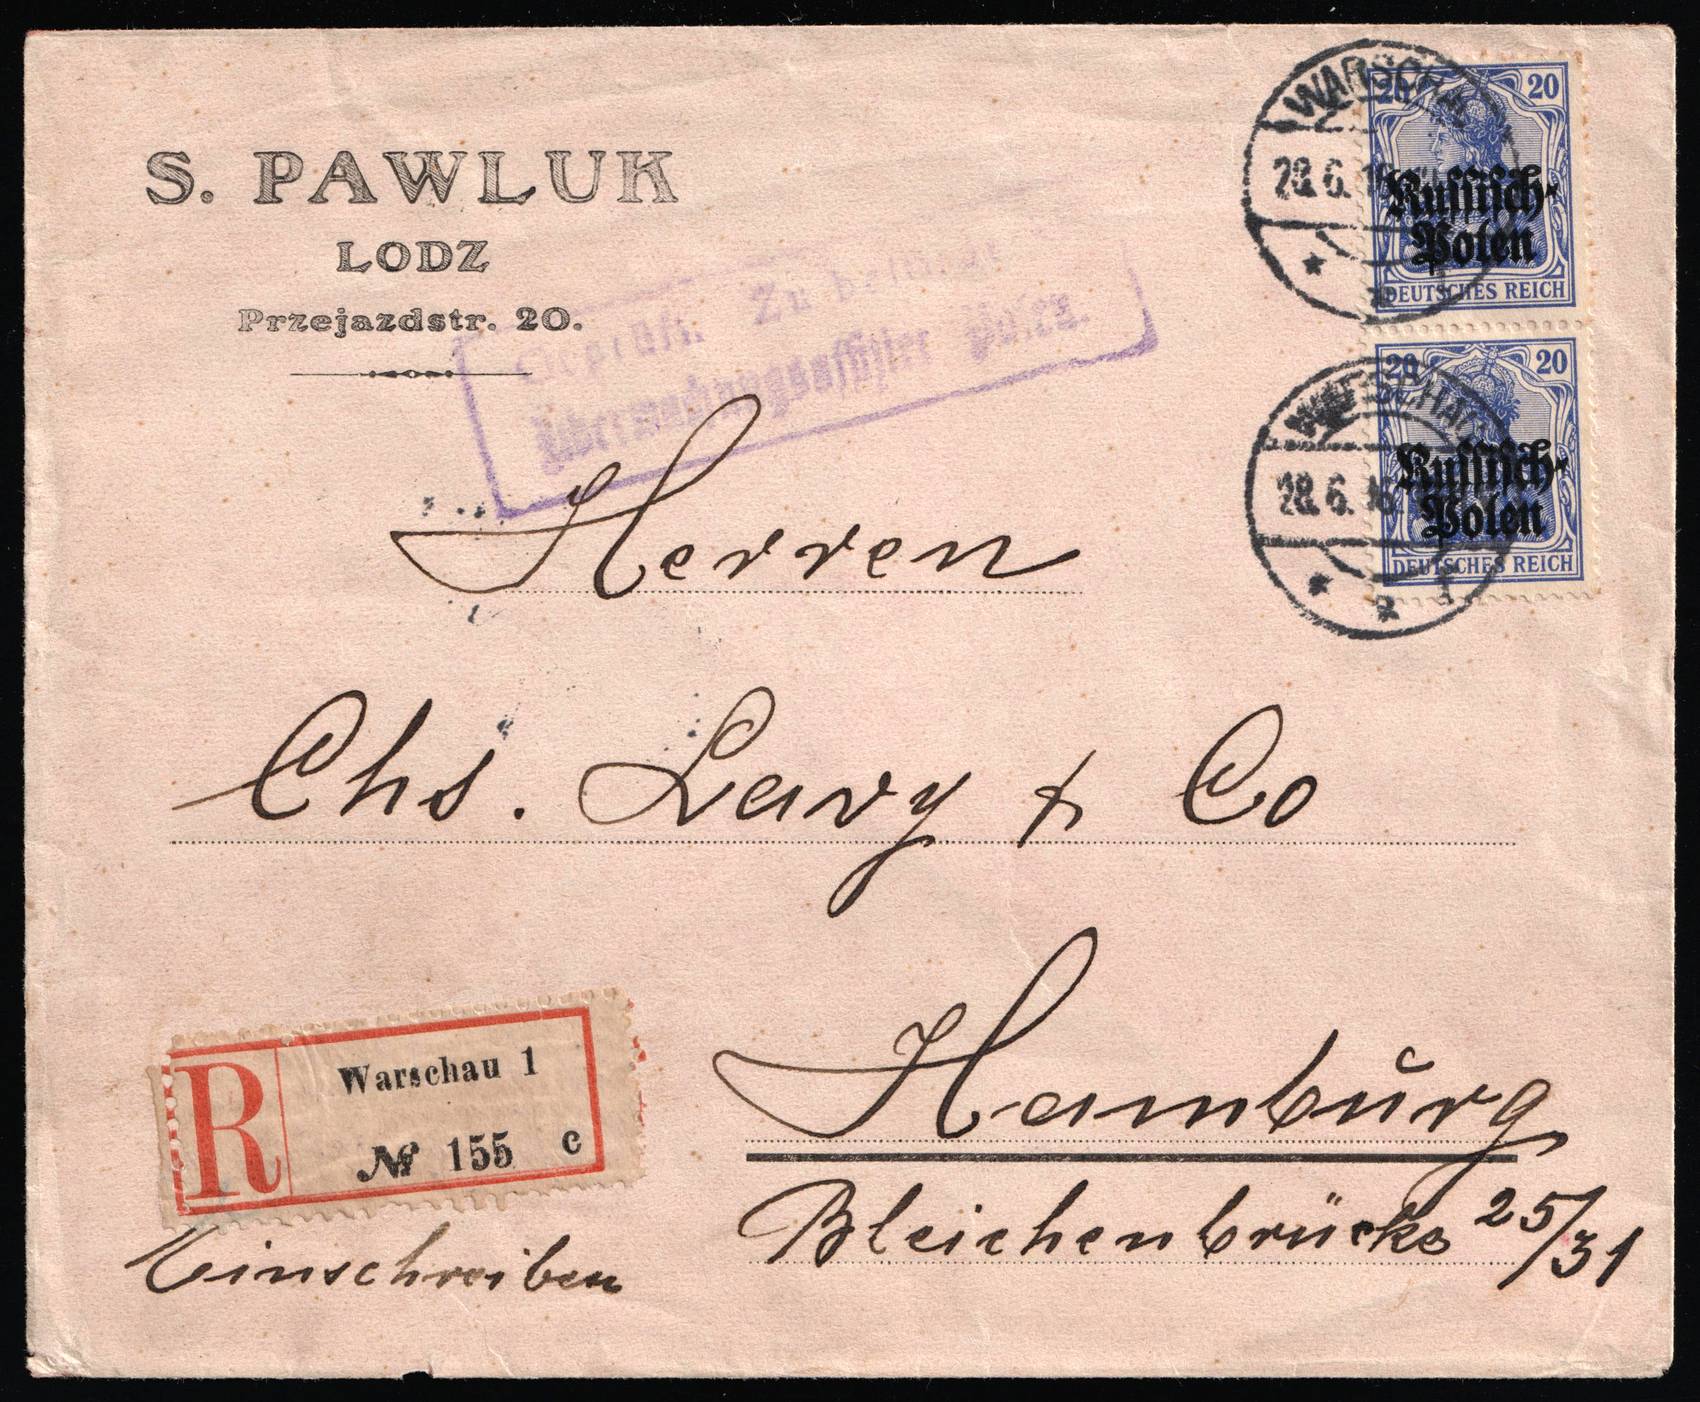 S. PAWLUK
LODZ
Przejazdstr. 20.
Geprüft. Zu
Überwachungsoffizier Posen.
WARSCHAU
28.6.16
*
1
20 20
Russisch-
Polen
DEUTSCHES REICH
WARSCHAU
28.6.16
* a 1
20 20
Russisch-
Polen
DEUTSCHES REICH
Herren
Chs. Lavy & Co
Hamburg
Bleichenbrücke 25/31
R
Warschau 1
№ 155 c
Einschreiben